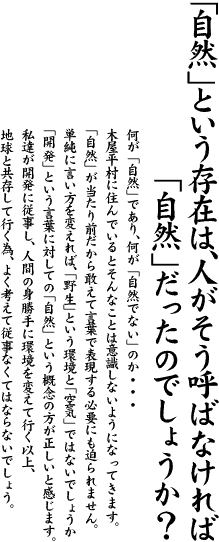 「自然」という存在は、人がそう呼ばなければ
「自然」だったのでしょうか？
何が「自然」であり、何が「自然でない」のか・・・
木屋平村に住んでいるとそんなことは意識しないようになってきます。
「自然」が当たり前だから敢えて言葉で表現する必要にも迫られません。
単純に言い方を変えれば、「野生」という環境と「空気」ではないでしょうか
「開発」という言葉に対しての「自然」という概念の方が正しいと感じます。
私達が開発に従事し、人間の身勝手に環境を変えて行く以上、
地球と共存して行く為、よく考えて従事なくてはならないでしょう。